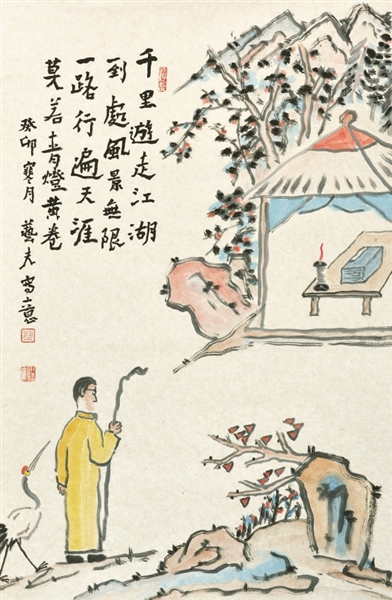 千里遊走江湖
到處風景無限
一路行遍天涯
莫若青燈黄卷
癸卯寒月 藝夫寫意